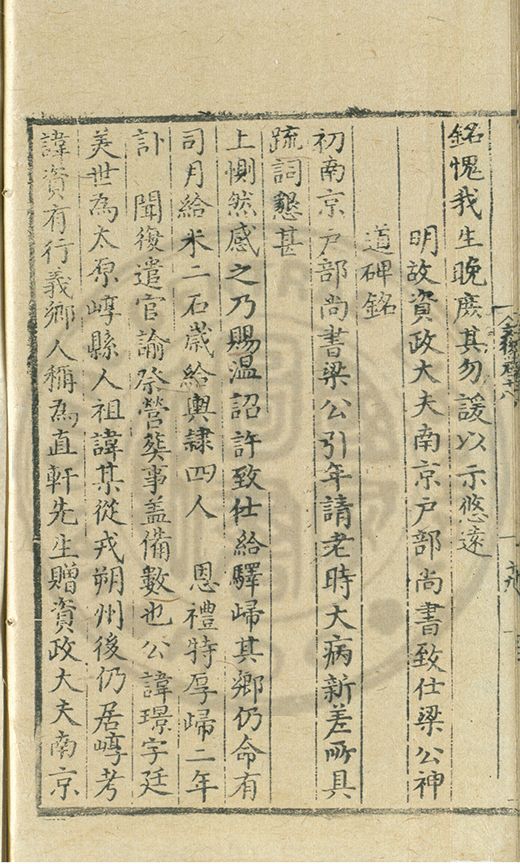 銘愧我生晚庻其勿諼以示悠逺
明故資政大夫南京戶部尚書致仕梁公神
道碑銘
初南京戶部尚書梁公引年請老時大病新差所具
疏詞懇甚
上惻然感之乃賜温詔許致仕給驛歸其鄉仍命有
司月給米二石歲給輿隷四人　恩禮特厚歸二年
訃　聞復遣官諭祭營葬事盖備數也公諱璟字廷
美世為太原崞縣人祖諱某從戎朔州後仍居崞考
諱資有行義鄉人稱為直軒先生贈資政大夫南京